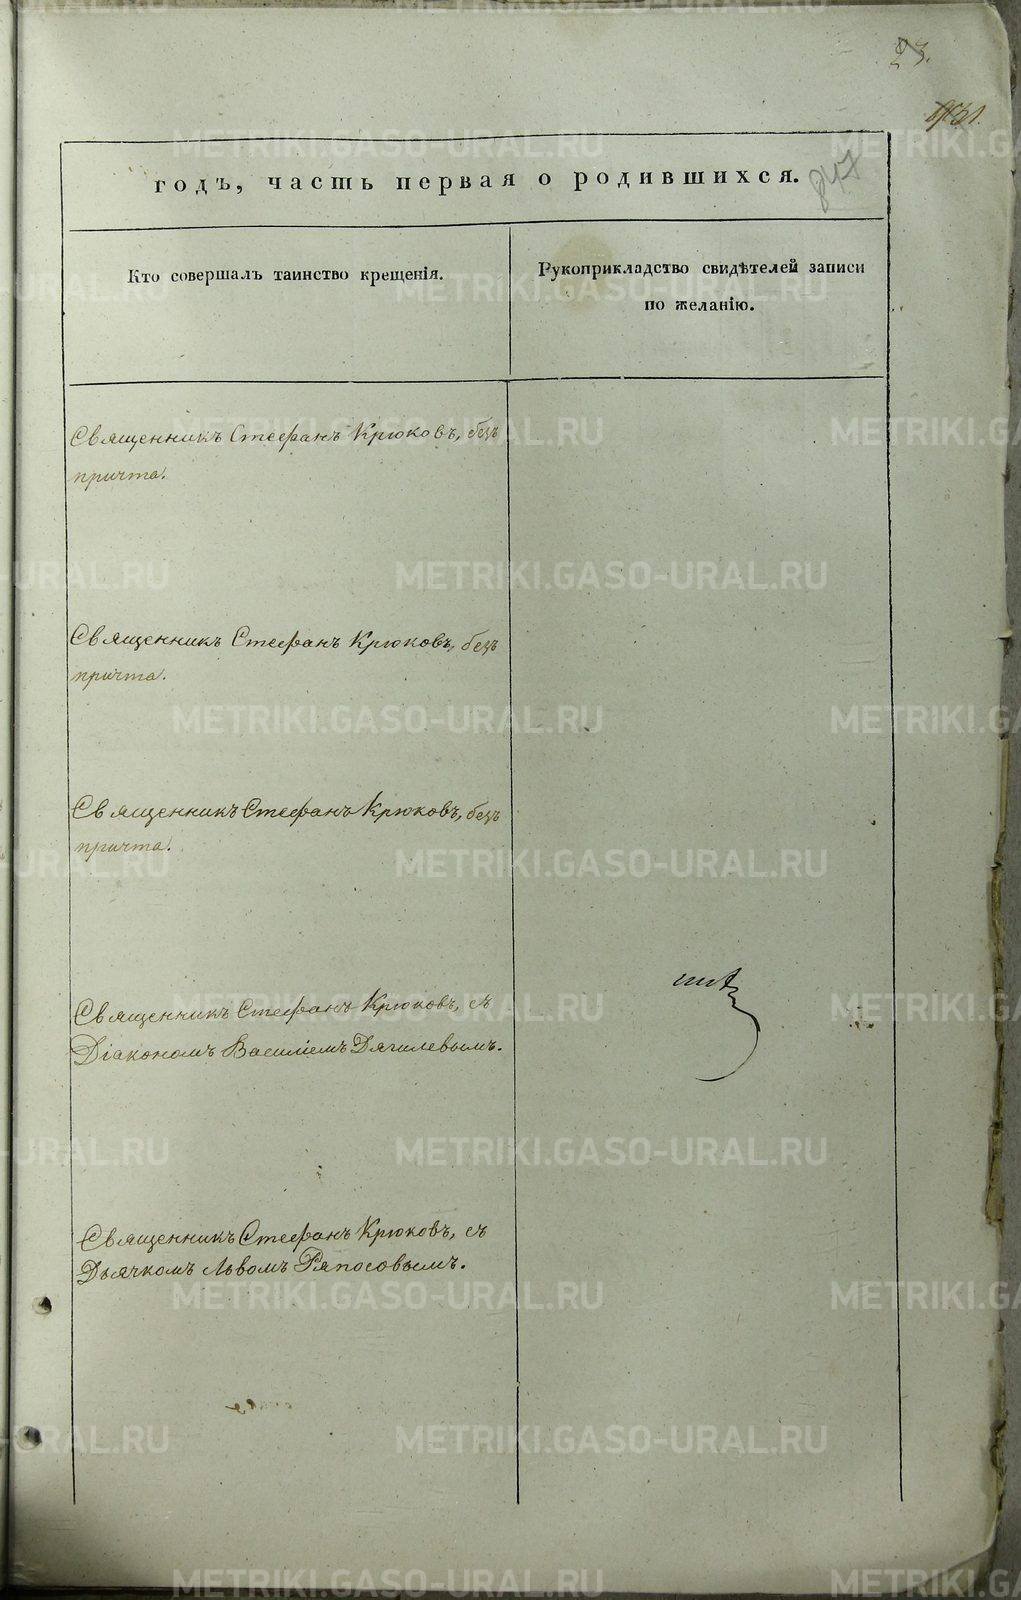 23.
847
годъ, часть первая о родившихся.
Кто совершалъ таинство крещенія.
Рукоприкладство свидѣтелей записи
по желанію.
Священникъ Стефанъ Крюковъ, безъ
причта.
Священникъ Стефанъ Крюковъ, безъ
причта.
Священникъ Стефанъ Крюковъ, безъ
причта.
Священникъ Стефанъ Крюковъ, съ
Діакономъ Василіемъ Дягилевымъ.
Священникъ Стефанъ Крюковъ, съ
Дьячкомъ Львомъ Ряпосовымъ.
METRIKI.GASO-URAL.RU